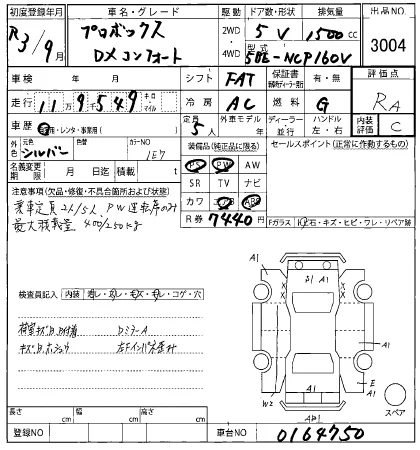 初度登録年月 車名・グレード 駆動 ドア数・形状 排気量 出品NO
R3/9月 プロボックス DXコンフォート 2WD 4WD 5V 1500cc 3004
型式 5BE-NCP160V
車検 年 月 シフト FAT 保証書 有・無 評価点
走行 11万9千549キロ・マイル 冷房 AC 燃料 G RA
車歴 自家・レンタ・事業用( ) 定員 5人 外車モデル 年 ディーラー 並行 ハンドル 左・右 内装評価 C
元色 シルバー 色替 カラーNO 1E7
装備品(純正品に限る) セールスポイント(正常に動作するもの)
名義変更期限 月 日迄 積載 t
PS PW AW
SR TV ナビ
カワ エアB ABS
注意事項(欠品・修復・不具合箇所および状態)
乗車定員2人/5人 PW運転席のみ
最大積載量400/250kg
R券 7440円
Fガラス 飛石・キズ・ヒビ・ワレ・リペア跡
検査員記入 内装 ヨゴレ・スレ・キレ・コゲ・穴
荷室キズ
DミラーA
A1
A1
A1
A1
E
A1
W2
A1
スペア
長さ cm 幅 cm 高さ cm
登録NO 車台NO 0164750